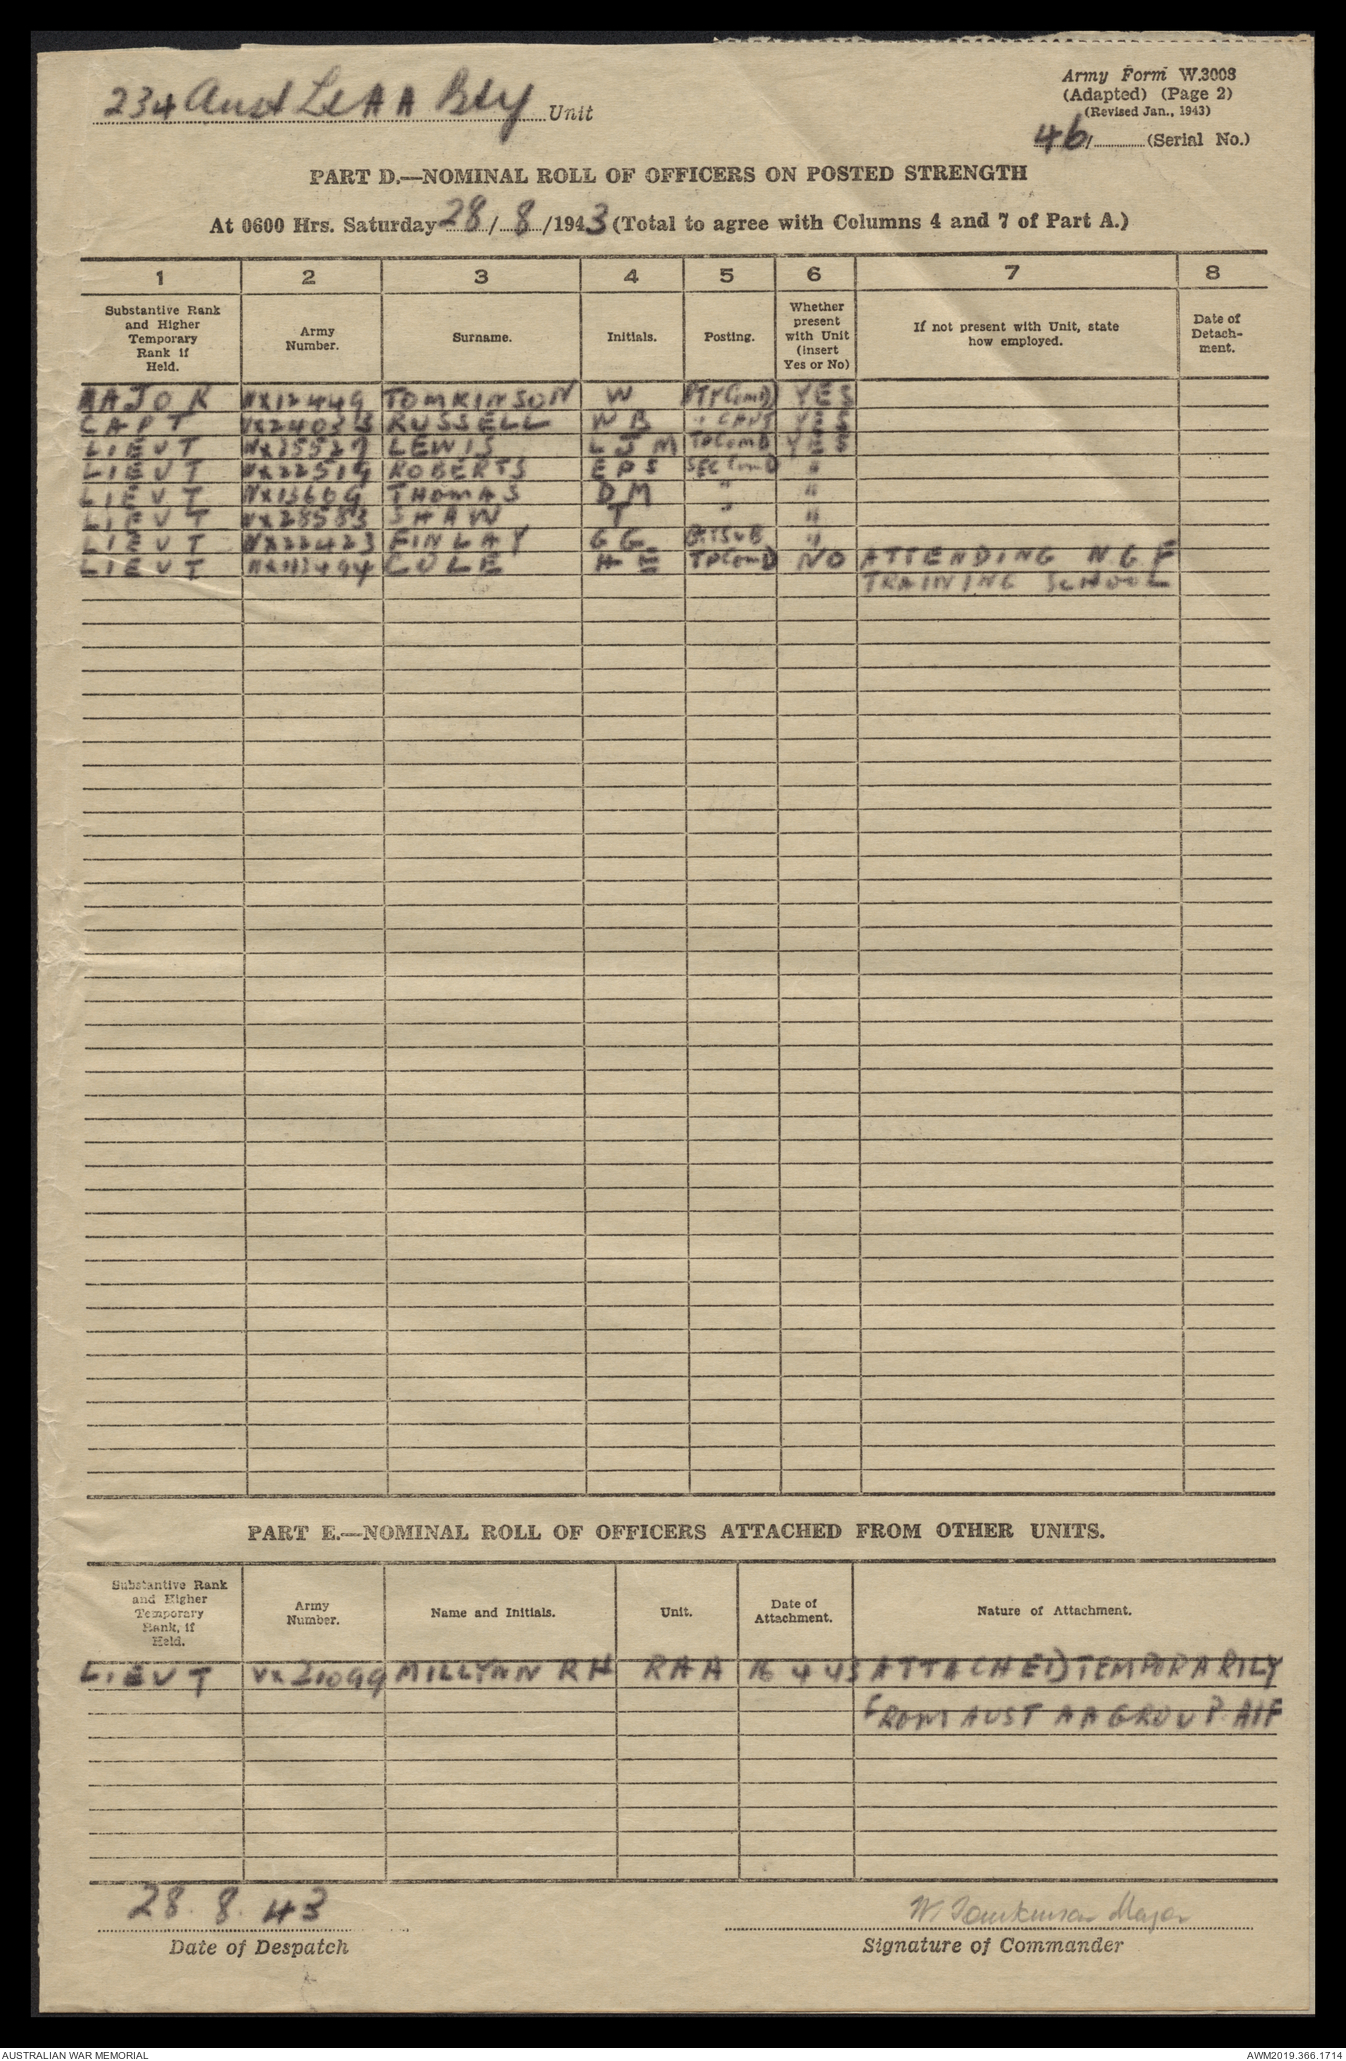 234 Aust Lt A A Bty Unit
Army Form W.3008
(Adapted) (Page 2)
(Revised Jan., 1943)
46/ (Serial No.)
PART D.—NOMINAL ROLL OF OFFICERS ON POSTED STRENGTH
At 0600 Hrs. Saturday 28/8/1943 (Total to agree with Columns 4 and 7 of Part A.)
1 2 3 4 5 6 7 8
Substantive Rank and Higher Temporary Rank if Held. Army Number. Surname. Initials. Posting. Whether present with Unit (insert Yes or No) If not present with Unit, state how employed. Date of Detach-ment.
MAJOR NX12449 TOMKINSON W BTY ComD YES
CAPT RUSSELL W B " CAPT YES
LIEUT LEWIS L J M TpComD YES
LIEUT NX22519 ROBERTS E P S SEC ComD "
LIEUT NX13609 THOMAS D M " "
LIEUT 28583 SHAW T " "
LIEUT NX22423 FINLAY G G "
LIEUT COLE H E TpComD NO ATTENDING N.G.F
TRAINING SCHOOL
PART E.—NOMINAL ROLL OF OFFICERS ATTACHED FROM OTHER UNITS.
Substantive Rank and Higher Temporary Rank, if Held. Army Number. Name and Initials. Unit. Date of Attachment. Nature of Attachment.
LIEUT VX21099 MILLYNN R H RAA 16 4 43 ATTACHED TEMPORARILY
FROM AUST AA GROUP AIF
28.8.43
W. Tomkinson Major
Date of Despatch
Signature of Commander
AUSTRALIAN WAR MEMORIAL
AWM2019.366.1714